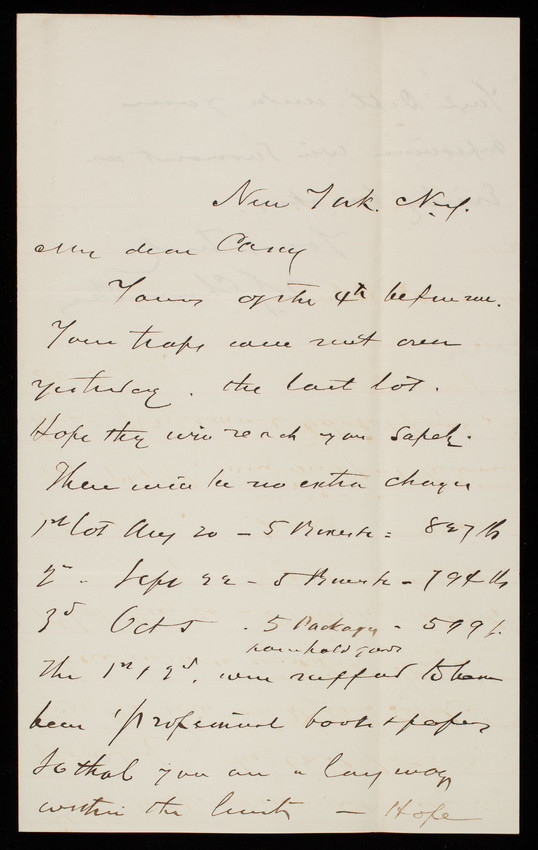 New York. N.Y.
My dear Casey
Yours of the 4th before me.
Your traps were sent over
yesterday. the last lot.
Hope they will reach you safely.
There will be no extra charges
1st lot Aug 20 - 5 Boxes = 827 lb
2d " Sept 22 - 5 Boxes - 794 lb
3d Oct 5 - 5 Packages - 599 lb.
household goods
The 1st & 2d. were supposed to have
been professional books & papers
So that you are a long way
within the limits - Hope